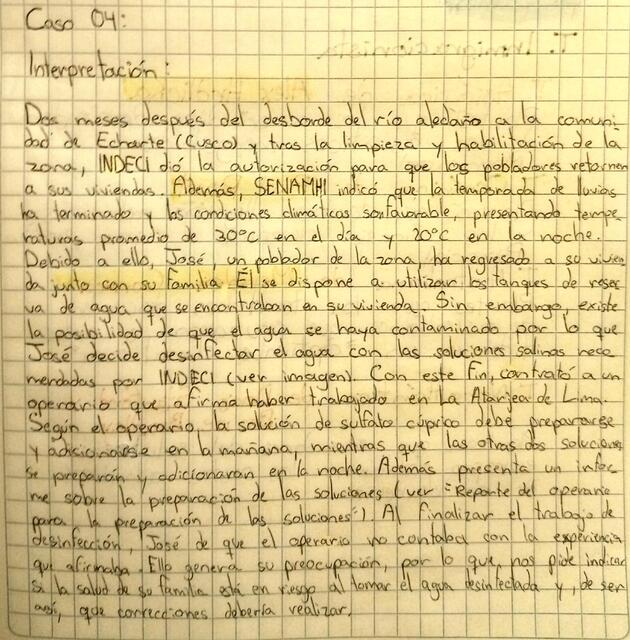 Caso 04:
Interpretación:
Dos meses después del desborde del río aledaño a la comuni
dad de Echarte (Cusco) y tras la limpieza y habilitación de la
zona, INDECI dió la autorización para que los pobladores retornen
a sus viviendas. Además, SENAMHI indicó que la temporada de lluvias
ha terminado y las condiciones climáticas son favorable, presentando tempe
raturas promedio de 30°C en el día y 20°C en la noche.
Debido a ello, José, un poblador de la zona, ha regresado a su vivien
da junto con su familia. Él se dispone a utilizar los tanques de reser
va de agua que se encontraban en su vivienda. Sin embargo, existe
la posibilidad de que el agua se haya contaminado por lo que
José decide desinfectar el agua con las soluciones salinas reco
mendadas por INDECI (ver imagen). Con este fin, contrató a un
operario que afirma haber trabajado en La Atarjea de Lima.
Según el operario, la solución de sulfato cúprico debe prepararse
y adicionarse en la mañana, mientras que las otras dos soluciones
se preparán y adicionaran en la noche. Además presenta un infor
me sobre la preparación de las soluciones (ver "Reporte del operario
para la preparación de las soluciones"). Al finalizar el trabajo de
desinfección, José de que el operario no contaba con la experiencia
que afirmaba. Ello genera su preocupación, por lo que, nos pide indicar
si la salud de su familia está en riesgo al tomar el agua desinfectada y, de ser
así, que correcciones debería realizar.